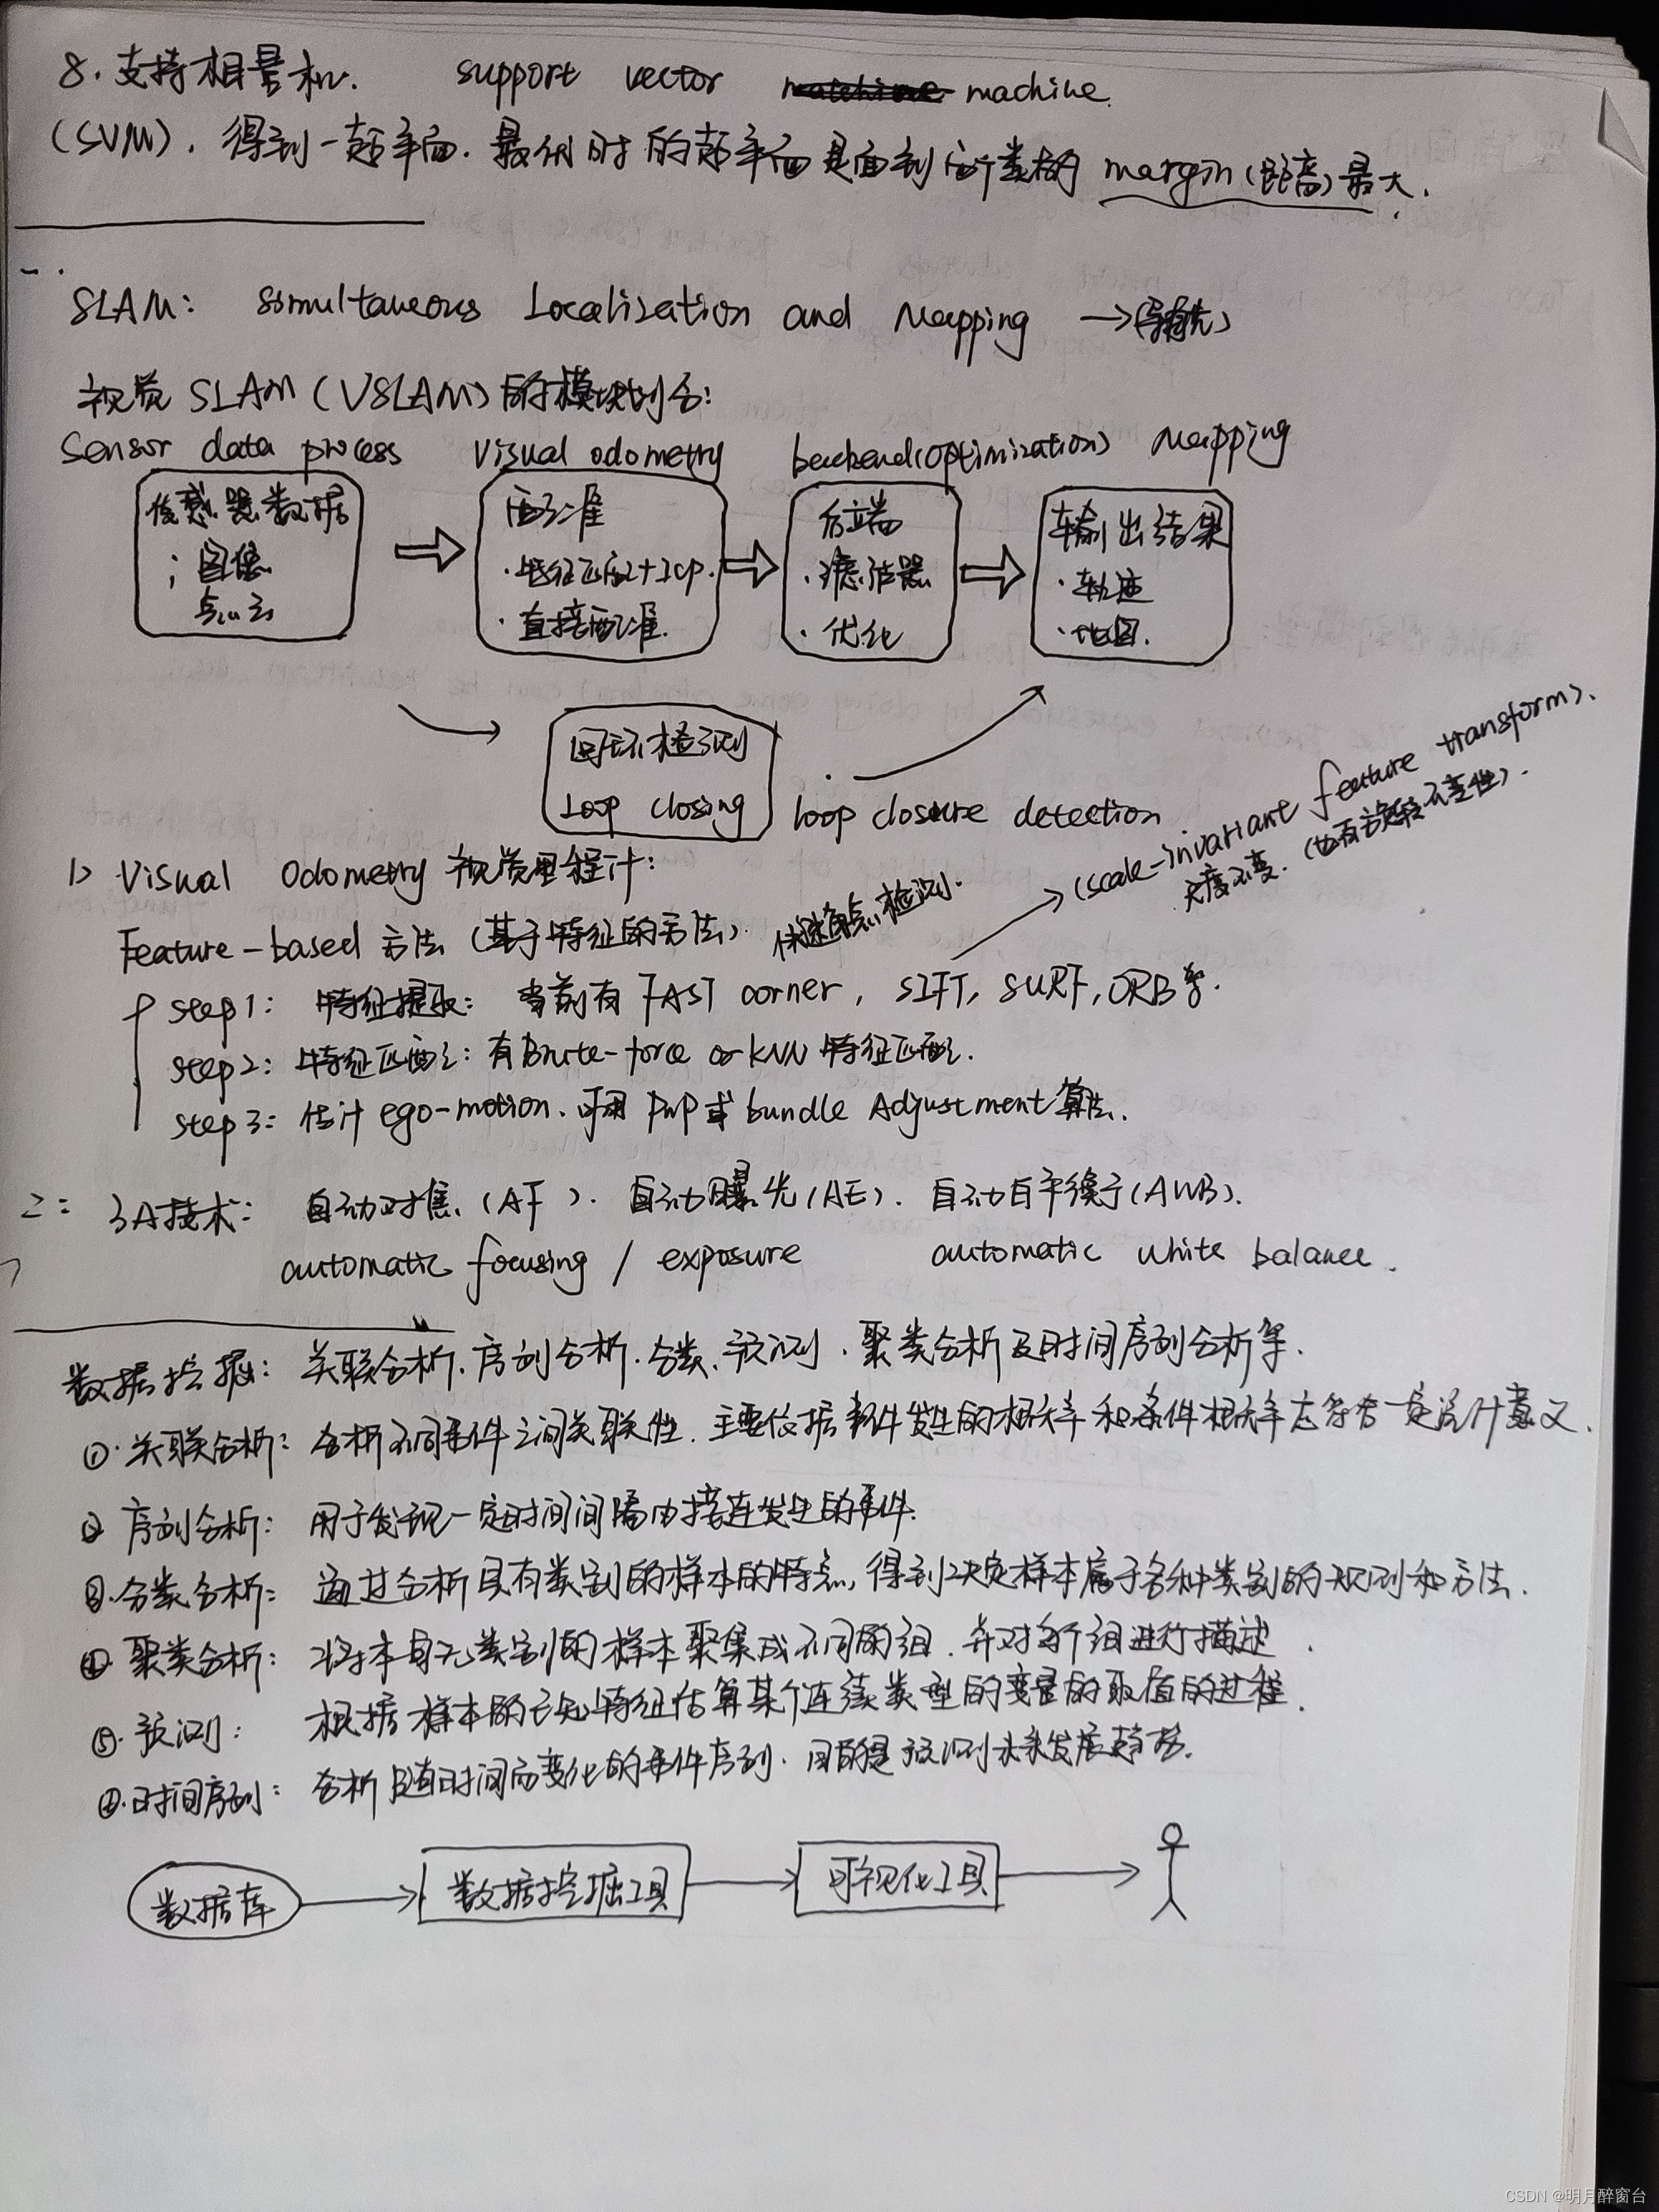 8. 支持相量机. support vector machine.
(SVM), 得到一超平面. 最优时的超平面是面到两个类的 margin (距离) 最大.
一.
SLAM: Simultaneous Localization and Mapping →
视觉 SLAM (VSLAM) 的模块划分:
Sensor data process Visual odometry backend(optimization) Mapping
传感器数据
; 图像
点云
配准
· 特征匹配+ICP.
· 直接配准.
后端
· 滤波器
· 优化
输出结果
· 轨迹
· 地图.
回环检测
Loop closing
loop closure detection
(scale-invariant feature transform).
尺度不变. (也有旋转不变性).
1> Visual Odometry 视觉里程计:
Feature-based 方法 (基于特征的方法).
快速角点检测.
step1: 特征提取: 当前有 FAST corner, SIFT, SURF, ORB等.
step2: 特征匹配: 有Brute-force or KNN 特征匹配.
step3: 估计 ego-motion. 可用 PnP 或 bundle Adjustment 算法.
二: 3A技术: 自动对焦 (AF). 自动曝光 (AE). 自动白平衡 (AWB).
automatic focusing / exposure automatic white balance.
数据挖掘: 关联分析. 序列分析. 分类. 预测. 聚类分析及时间序列分析等.
①. 关联分析: 分析不同事件之间关联性. 主要依据事件发生的概率和条件概率是否符合一定统计意义.
② 序列分析: 用于发现一定时间间隔内接连发生的事件.
③. 分类分析: 通过分析具有类别的样本的特点, 得到决定样本属于各种类别的规则和方法.
④ 聚类分析: 将本身无类别的样本聚集成不同的组. 并对每个组进行描述.
⑤. 预测: 根据样本的已知特征估算某个连续类型的变量的取值的过程.
时间序列: 分析随时间而变化的事件序列. 目的是预测未来发展趋势.
数据库 数据挖掘工具 可视化工具
CSDN @明月醉窗台